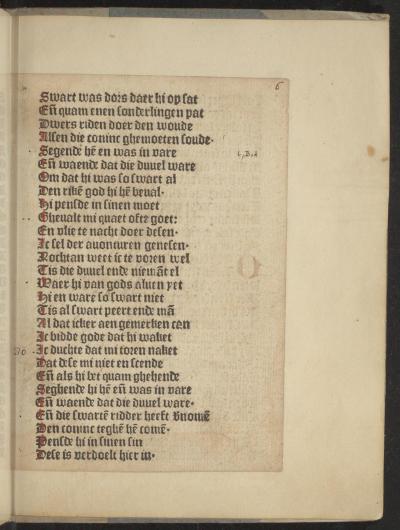 6
Swart was dors daer hi op sat
Eñ quam enen sonderlingen pat
Dwers riden doer den woude
Alsen die coninc ghemoeten soude·
Segende hē en was in vare
Eñ waende dat die duuel ware
Om dat hi was so swart al
Den rikē god hi hē beual·
Hi pensde in sinen moet
Gheualt mi quaet ofte goet:
En vlie te nacht doer desen·
Ic sel der auonturen genesen·
Nochtan weet ic te voren wel
Tis die duuel ende niemāt el
Waer hi van gods aluen yet
Hi en ware so swart niet
Tis al swart peert ende mā
Al dat icker aen gemerken can
Ic bidde gode dat hi waket
30 · Ic duchte dat mi toren naket
Dat dese mi niet en scende
Eñ als hi bet quam ghehende
Seghende hi hē eñ was in vare
Eñ waende dat die duuel ware·
Eñ die swartē ridder heeft vnomē
Den coninc teghē hē comē·
Pensde hi in sinen sin
Dese is verdoelt hier in·